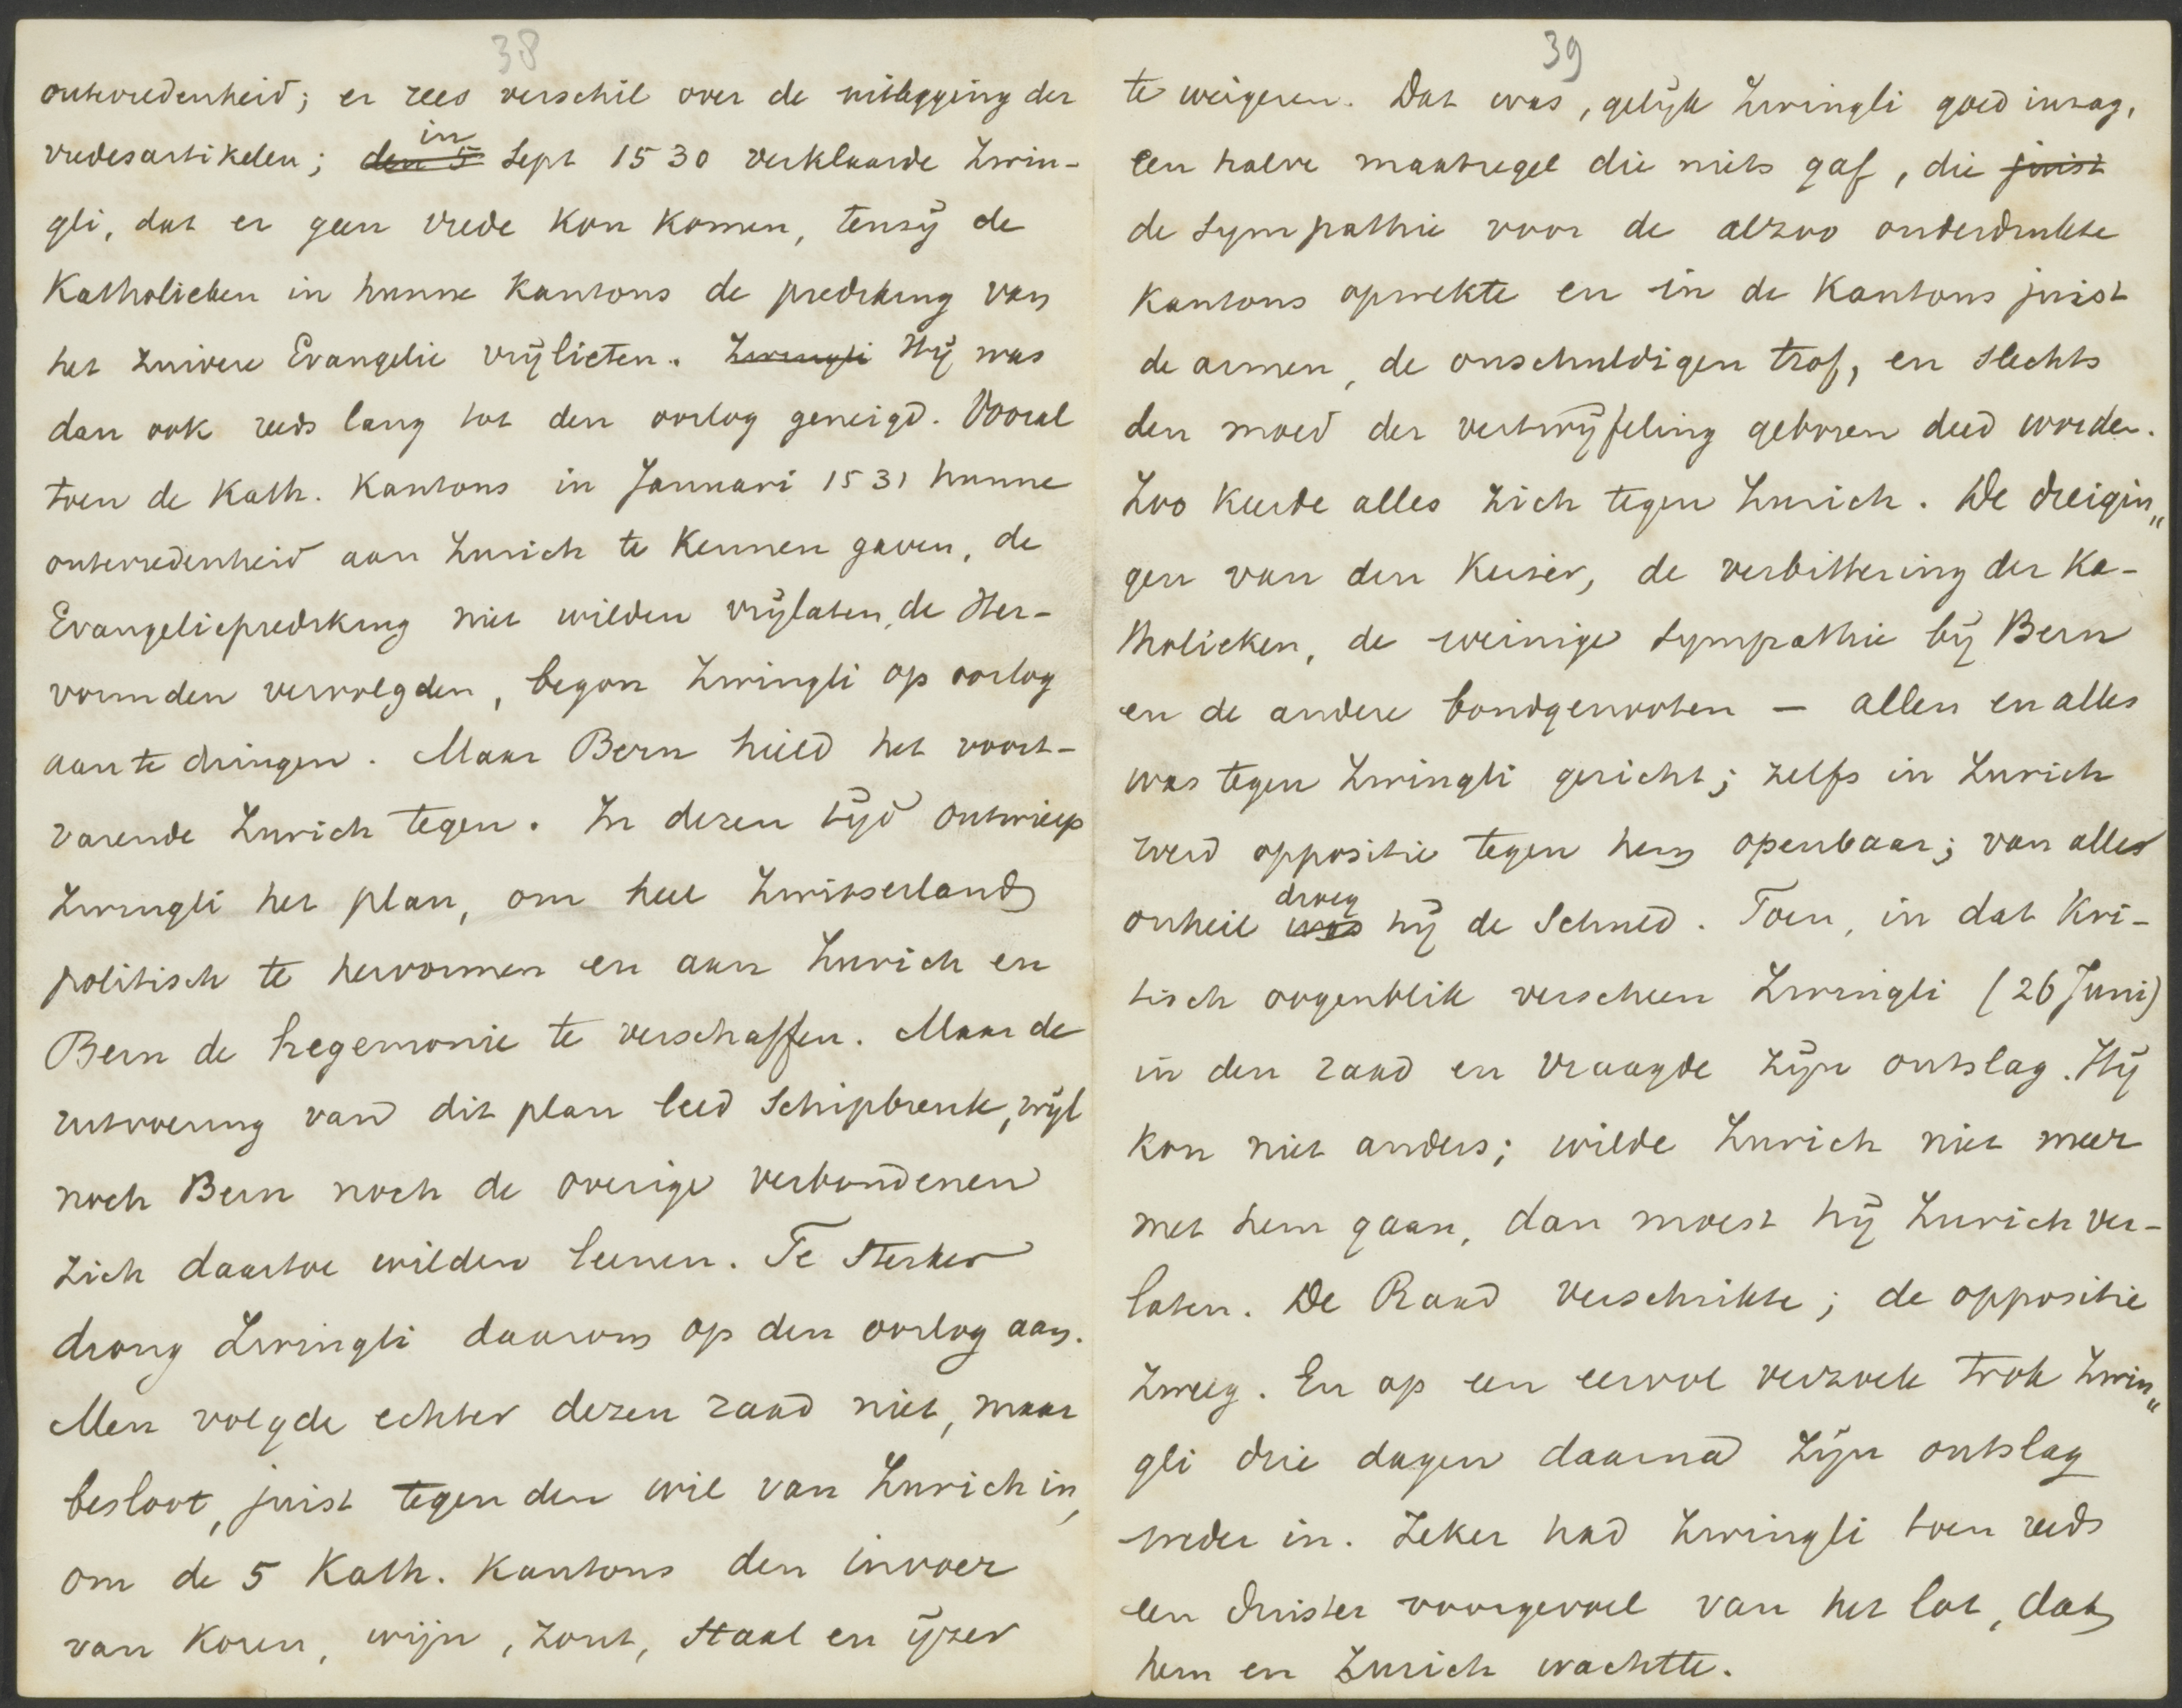 38
ontevredenheid; er rees verschil over de uitlegging der
vredesartikelen; ~~den 5~~ in Sept 1530 verklaarde Zwin-
gli, dat er geen vrede kon komen, tenzÿ de
Katholieken in hunne kantons de prediking van
het zuivere Evangelie vrÿlieten. ~~Zwingli~~ Hÿ was
dan ook reeds lang tot den oorlog geneigd. Vooral
toen de Kath. Kantons in Januari 1531 hunne
ontevredenheid aan Zurich te kennen gaven, de
Evangelieprediking niet wilden vrÿlaten, de Her-
vormden vervolgden, begon Zwingli op oorlog
aan te dringen. Maar Bern hield het voort-
varende Zurich tegen. In dezen tÿd ontwierp
Zwingli het plan, om heel Zwitserland
politisch te hervormen en aan Zurich en
Bern de hegemonie te verschaffen. Maar de
uitvoering van dit plan leed schipbreuk, wÿl
noch Bern noch de overige verbondenen
zich daartoe wilden leenen. Te sterker
drong Zwingli daarom op den oorlog aan.
Men volgde echter dezen raad niet, maar
besloot, juist tegen den wil van Zurich in,
om de 5 Kath. Kantons den invoer
van koren, wijn, zout, staal en ÿzer
39
te weigeren. Dat was, gelÿk Zwingli goed inzag,
een halve maatregel die niets gaf, die ~~juist~~
de sympathie voor de alzoo onderdrukte
kantons opwekte en in de kantons juist
de armen, de onschuldigen trof, en slechts
den moed der vertwÿfeling geboren deed worden.
Zoo keerde alles zich tegen Zurich. De dreigin„
gen van den Keizer, de verbittering der Ka-
tholieken, de weinige sympathie bÿ Bern
en de andere bondgenooten — allen en alles
was tegen Zwingli gericht; zelfs in Zurich
werd oppositie tegen hem openbaar; van alles
onheil ~~was~~ droeg hÿ de schuld. Toen, in dat kri-
tisch oogenblik verscheen Zwingli (26 Juni)
in den raad en vraagde zÿn ontslag. Hÿ
kon niet anders; wilde Zurich niet meer
met hem gaan, dan moest hÿ Zurich ver-
laten. De Raad verschrikte; de oppositie
zweeg. En op een eervol verzoek trok Zwin„
gli drie dagen daarna zÿn ontslag
weder in. Zeker had Zwingli toen reeds
een duister voorgevoel van het lot, dat
hem en Zurich wachtte.